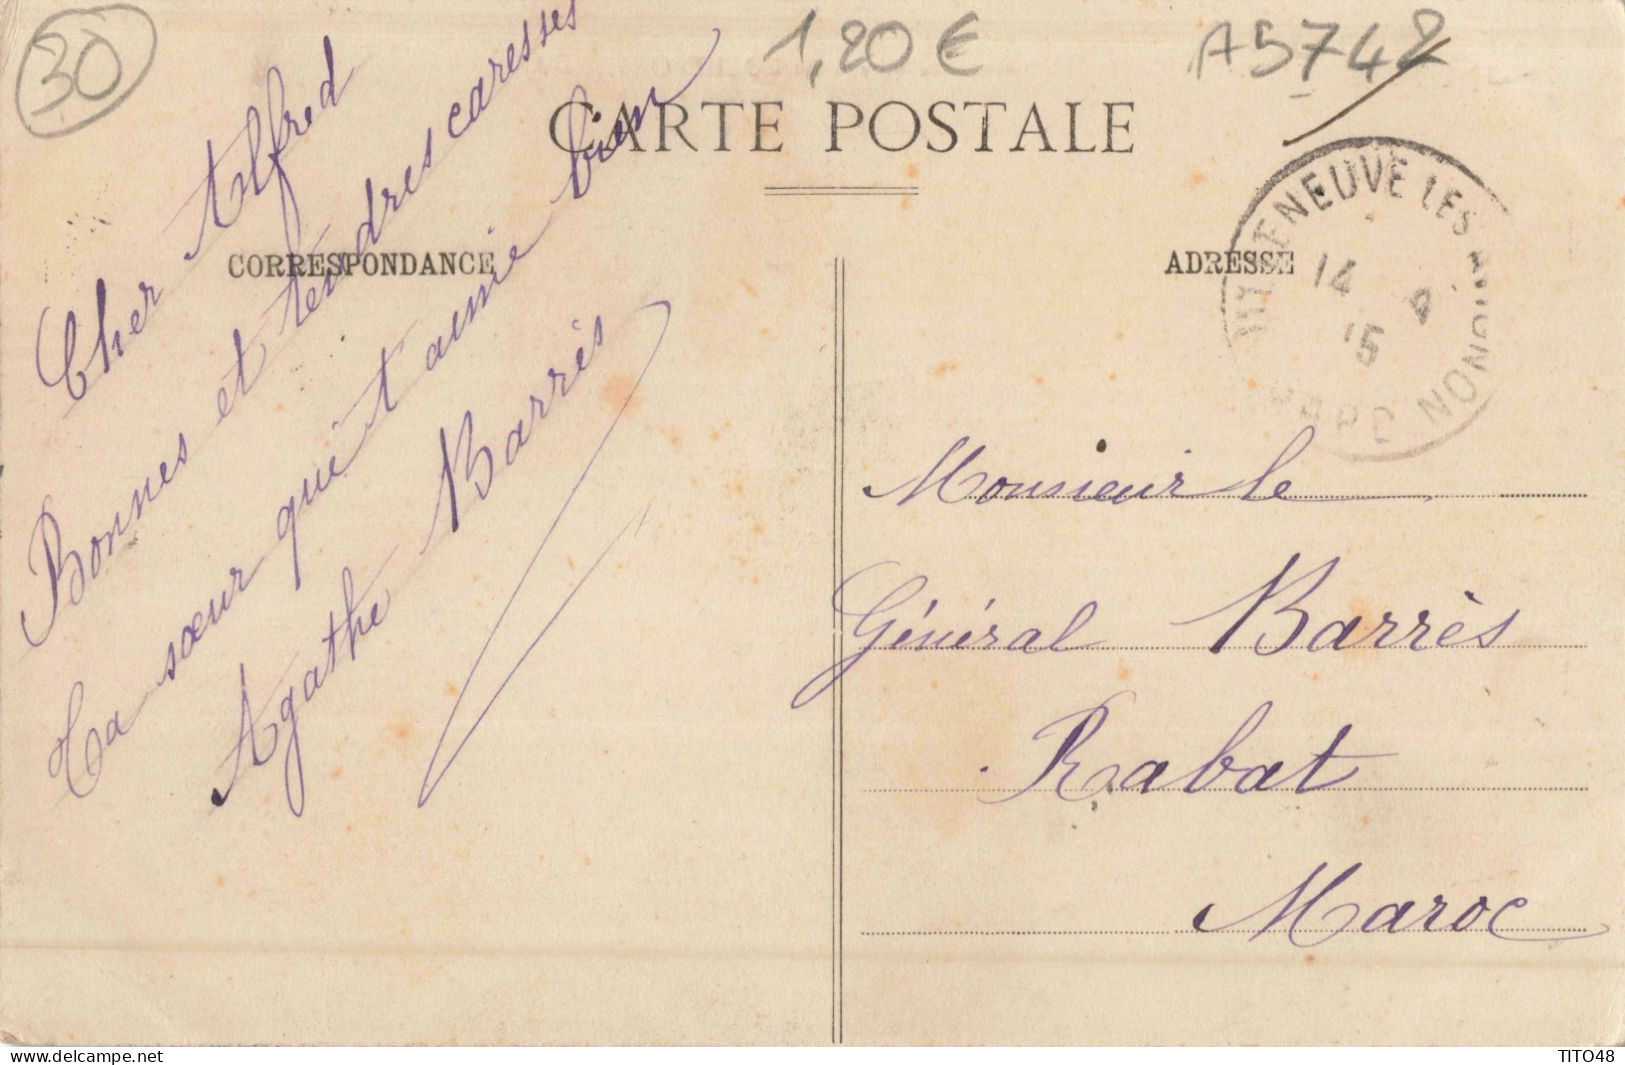 30
1,20 €
A5742
CARTE POSTALE
CORRESPONDANCE
ADRESSE
NEUVE LES
14 4
15
Cher Alfred
Bonnes et tendres caresses
Ta sœur qui t'aime bien
Agathe Barrès
Monsieur le
Général Barrès
Rabat
Maroc
www.delcampe.net
TITO48